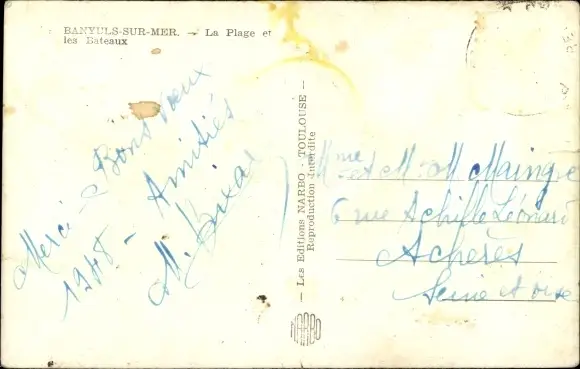 BANYULS-SUR-MER. — La Plage et
les Bateaux
Merci - Bons Voeux
1948 - Amitiés
— Les Editions NARBO - TOULOUSE —
Reproduction Interdite
NARBO
Mme et M. M Maingre
6 rue Achille Léonard
Achères
Seine et oise